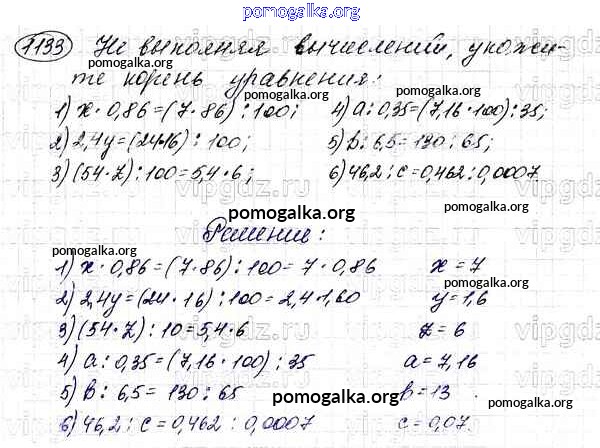 pomogalka.org
1133 Не выполняя вычислений, укажи-
те корень уравнения:
1) x · 0,86 = (7 · 86) : 100;
2) 2,4y = (24·16) : 100;
3) (54 · z) : 100 = 5,4 · 6;
4) a : 0,35 = (7,16 · 100) : 35;
5) b : 6,5 = 130 : 65;
6) 46,2 : c = 0,462 : 0,0007
pomogalka.org
Решение:
1) x · 0,86 = (7 · 86) : 100 = 7 · 0,86 x = 7
2) 2,4y = (24 · 16) : 100 = 2,4·1,60 y = 1,6
3) (54 · z) : 10 = 5,4 · 6 z = 6
4) a : 0,35 = (7,16 · 100) : 35 a = 7,16
5) b : 6,5 = 130 : 65 b = 13
6) 46,2 : c = 0,462 : 0,0007 c = 0,07.
pomogalka.org
pomogalka.org
pomogalka.org
pomogalka.org
pomogalka.org
pomogalka.org
vipgdz.ru